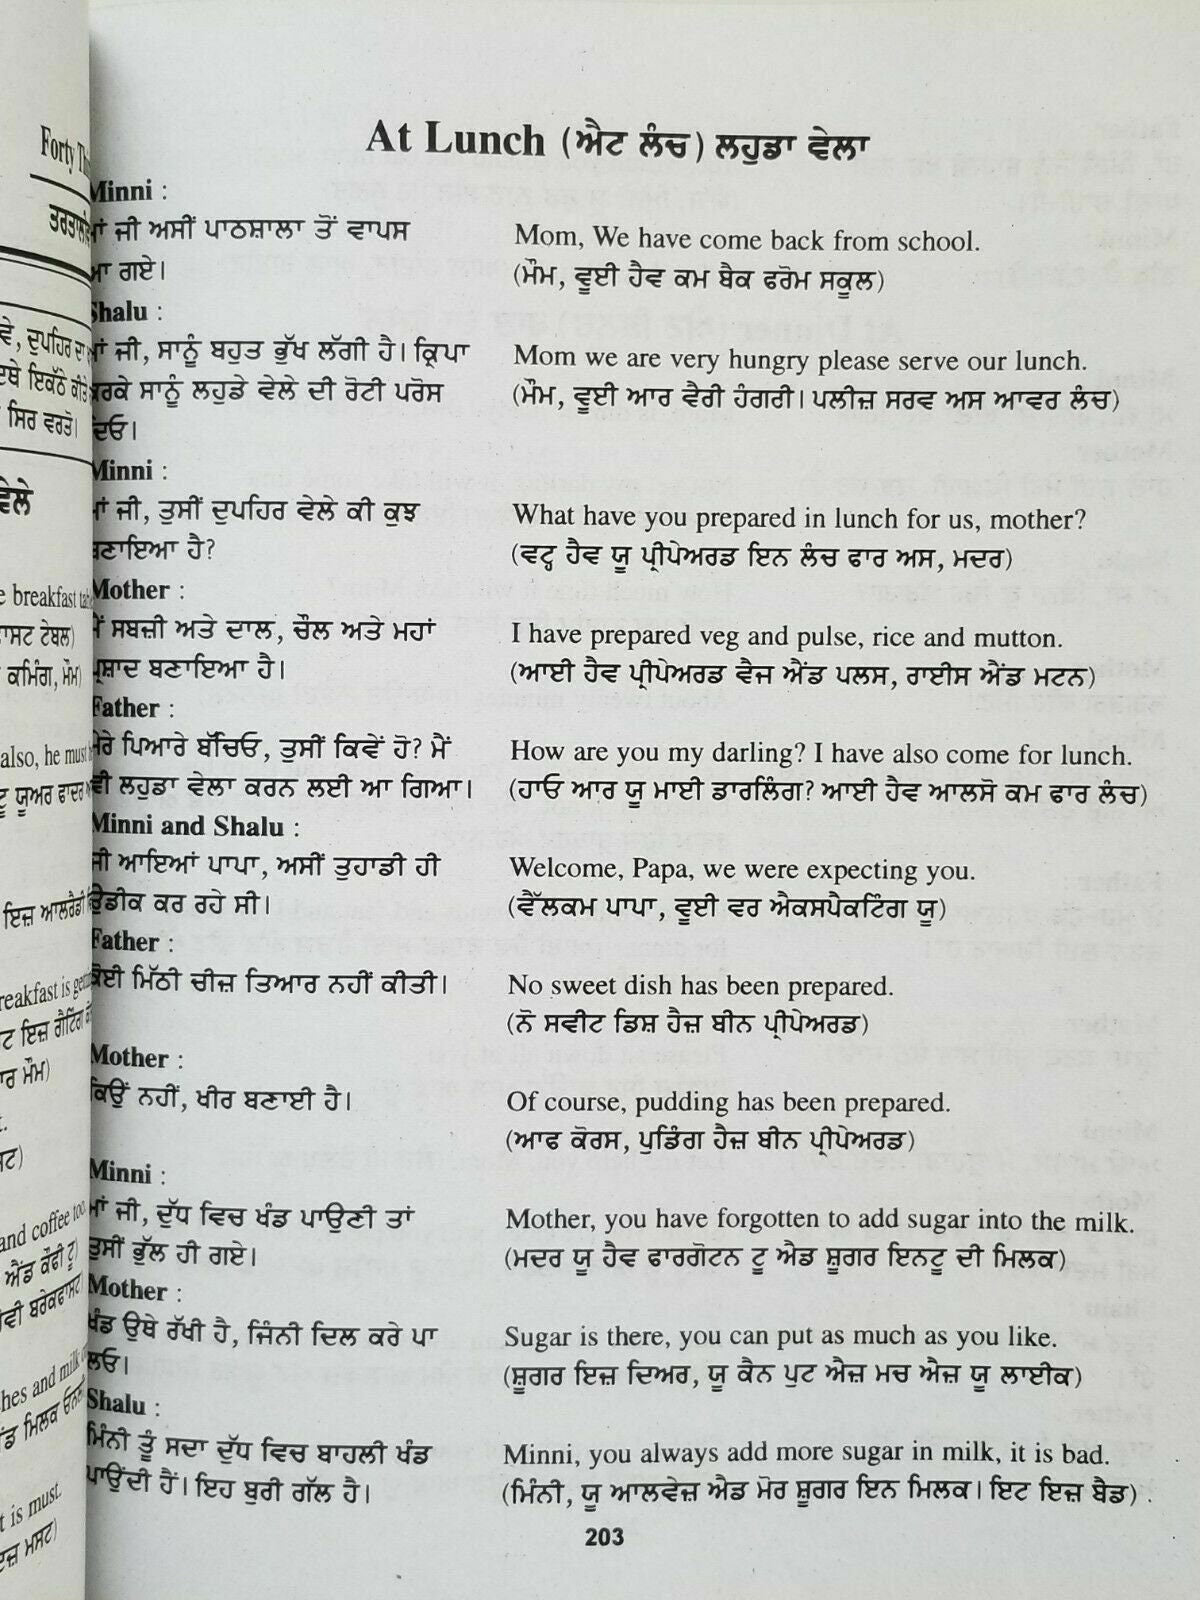 At Lunch (ਐਟ ਲੰਚ) ਲਹੁਡਾ ਵੇਲਾ
Minni :
ਮਾਂ ਜੀ ਅਸੀਂ ਪਾਠਸ਼ਾਲਾ ਤੋਂ ਵਾਪਸ
ਆ ਗਏ।
Mom, We have come back from school.
(ਮੌਮ, ਵੂਈ ਹੈਵ ਕਮ ਬੈਕ ਫਰੋਮ ਸਕੂਲ)
Shalu :
ਮਾਂ ਜੀ, ਸਾਨੂੰ ਬਹੁਤ ਭੁੱਖ ਲੱਗੀ ਹੈ। ਕ੍ਰਿਪਾ
ਕਰਕੇ ਸਾਨੂੰ ਲਹੁਡੇ ਵੇਲੇ ਦੀ ਰੋਟੀ ਪਰੋਸ
ਦਿਓ।
Mom we are very hungry please serve our lunch.
(ਮੌਮ, ਵੂਈ ਆਰ ਵੈਰੀ ਹੰਗਰੀ। ਪਲੀਜ਼ ਸਰਵ ਅਸ ਆਵਰ ਲੰਚ)
Minni :
ਮਾਂ ਜੀ, ਤੁਸੀਂ ਦੁਪਹਿਰ ਵੇਲੇ ਕੀ ਕੁਝ
ਬਣਾਇਆ ਹੈ?
What have you prepared in lunch for us, mother?
(ਵਟ੍ਹ ਹੈਵ ਯੂ ਪ੍ਰੀਪੇਅਰਡ ਇਨ ਲੰਚ ਫਾਰ ਅਸ, ਮਦਰ)
Mother :
ਮੈਂ ਸਬਜ਼ੀ ਅਤੇ ਦਾਲ, ਚੌਲ ਅਤੇ ਮਹਾਂ
ਪ੍ਰਸ਼ਾਦ ਬਣਾਇਆ ਹੈ।
I have prepared veg and pulse, rice and mutton.
(ਆਈ ਹੈਵ ਪ੍ਰੀਪੇਅਰਡ ਵੈਜ ਐਂਡ ਪਲਸ, ਰਾਈਸ ਐਂਡ ਮਟਨ)
Father :
ਮੇਰੇ ਪਿਆਰੇ ਬੱਚਿਓ, ਤੁਸੀਂ ਕਿਵੇਂ ਹੋ? ਮੈਂ
ਵੀ ਲਹੁਡਾ ਵੇਲਾ ਕਰਨ ਲਈ ਆ ਗਿਆ।
How are you my darling? I have also come for lunch.
(ਹਾਓ ਆਰ ਯੂ ਮਾਈ ਡਾਰਲਿੰਗ? ਆਈ ਹੈਵ ਆਲਸੋ ਕਮ ਫਾਰ ਲੰਚ)
Minni and Shalu :
ਜੀ ਆਇਆਂ ਪਾਪਾ, ਅਸੀਂ ਤੁਹਾਡੀ ਹੀ
ਉਡੀਕ ਕਰ ਰਹੇ ਸੀ।
Welcome, Papa, we were expecting you.
(ਵੈੱਲਕਮ ਪਾਪਾ, ਵੂਈ ਵਰ ਐਕਸਪੈਕਟਿੰਗ ਯੂ)
Father :
ਕੋਈ ਮਿੱਠੀ ਚੀਜ਼ ਤਿਆਰ ਨਹੀਂ ਕੀਤੀ।
No sweet dish has been prepared.
(ਨੋ ਸਵੀਟ ਡਿਸ਼ ਹੈਜ਼ ਬੀਨ ਪ੍ਰੀਪੇਅਰਡ)
Mother :
ਕਿਉਂ ਨਹੀਂ, ਖੀਰ ਬਣਾਈ ਹੈ।
Of course, pudding has been prepared.
(ਆਫ ਕੋਰਸ, ਪੁਡਿੰਗ ਹੈਜ਼ ਬੀਨ ਪ੍ਰੀਪੇਅਰਡ)
Minni :
ਮਾਂ ਜੀ, ਦੁੱਧ ਵਿਚ ਖੰਡ ਪਾਉਣੀ ਤਾਂ
ਤੁਸੀਂ ਭੁੱਲ ਹੀ ਗਏ।
Mother, you have forgotten to add sugar into the milk.
(ਮਦਰ ਯੂ ਹੈਵ ਫਾਰਗੋਟਨ ਟੂ ਐਡ ਸ਼ੂਗਰ ਇਨਟੂ ਦੀ ਮਿਲਕ)
Mother :
ਖੰਡ ਉਥੇ ਰੱਖੀ ਹੈ, ਜਿੰਨੀ ਦਿਲ ਕਰੇ ਪਾ
ਲਓ।
Sugar is there, you can put as much as you like.
(ਸ਼ੂਗਰ ਇਜ਼ ਦਿਅਰ, ਯੂ ਕੈਨ ਪੁਟ ਐਜ਼ ਮਚ ਐਜ਼ ਯੂ ਲਾਈਕ)
Shalu :
ਮਿੰਨੀ ਤੂੰ ਸਦਾ ਦੁੱਧ ਵਿਚ ਬਾਹਲੀ ਖੰਡ
ਪਾਉਂਦੀ ਹੈਂ। ਇਹ ਬੁਰੀ ਗੱਲ ਹੈ।
Minni, you always add more sugar in milk, it is bad.
(ਮਿੰਨੀ, ਯੂ ਆਲਵੇਜ਼ ਐਡ ਮੋਰ ਸ਼ੂਗਰ ਇਨ ਮਿਲਕ। ਇਟ ਇਜ਼ ਬੈਡ) .
203
Forty
ਦੁਪਹਿਰ ਦਾ
ਇਕੱਠੇ ਕੀਤੇ
ਸਿਰ ਵਰਤੋ।
ਵੇਲੇ
breakfast
ਟੇਬਲ)
ਕਮਿੰਗ, ਮੌਮ)
also, he must
ਯੂਅਰ ਫਾਦਰ
ਇਜ਼ ਆਲਰੈਡੀ
is
ਇਜ਼ ਗੈਟਿੰਗ
ਮੌਮ)
and coffee too.
ਐਂਡ ਕੌਫੀ ਟੂ)
ਬਰੇਕਫਾਸਟ)
and milk
ਮਿਲਕ
is must.
ਮਸਟ)